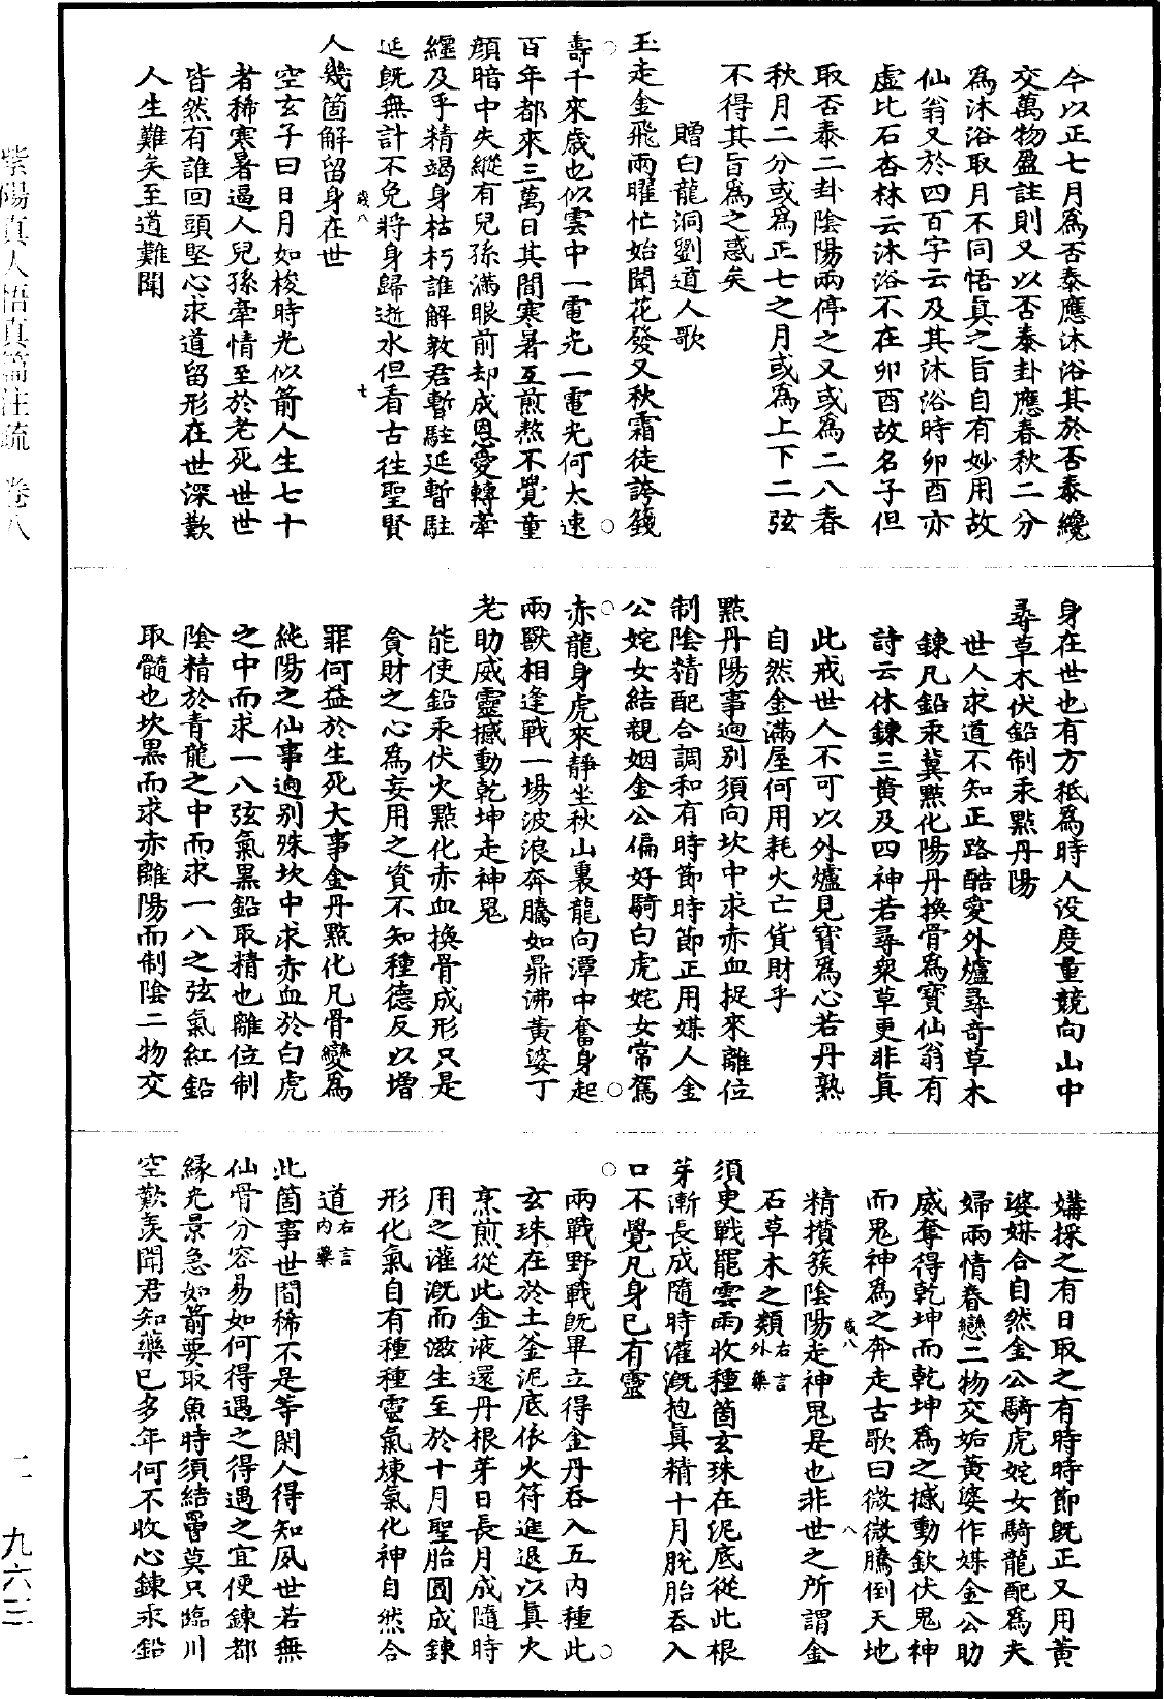 今以正七月為否泰應沐浴其於否泰纔
交萬物盈註則又以否泰卦應春秋二分
為沐浴取月不同悟真之旨自有妙用故
仙翁又於四百字云及其沐浴時卯酉亦
虛比石杏林云沐浴不在卯酉故名子但
取否泰二卦陰陽兩停之又或為二八春
秋月二分或為正七之月或為上下二弦
不得其旨為之惑矣
贈白龍洞劉道人歌
玉走金飛兩曜忙始聞花發又秋霜徒誇籛
壽千來歲也似雲中一電光一電光何太速
百年都來三萬日其間寒暑互煎熬不覺童
顏暗中失縱有兒孫滿眼前却成恩愛轉牽
纏及乎精竭身枯朽誰解教君暫駐延暫駐
延既無計不免將身歸逝水但看古往聖賢
人幾箇解留身在世
空玄子曰日月如梭時光似箭人生七十
者稀寒暑逼人兒孫牽情至於老死世世
皆然有誰回頭堅心求道留形在世深歎
人生難矣至道難聞
身在世也有方秖為時人沒度量競向山中
尋草木伏鉛制汞點丹陽
世人求道不知正路酷愛外爐尋奇草木
鍊凡鉛汞冀點化陽丹換骨為寶仙翁有
詩云休鍊三黃及四神若尋衆草更非真
此戒世人不可以外爐見寶為心若丹熟
自然金滿屋何用耗火亡貨財乎
點丹陽事迥別須向坎中求赤血捉來離位
制陰精配合調和有時節時節正用媒人金
公姹女結親姻金公偏好騎白虎姹女常駕
赤龍身虎來靜坐秋山裏龍向潭中奮身起
兩獸相逢戰一場波浪奔騰如鼎沸黃婆丁
老助威靈撼動乾坤走神鬼
能使鉛汞伏火點化赤血換骨成形只是
貪財之心為妄用之資不知種德反以增
罪何益於生死大事金丹點化凡骨變為
純陽之仙事迥別殊坎中求赤血於白虎
之中而求一八弦氣黑鉛取精也離位制
陰精於青龍之中而求一八之弦氣紅鉛
取髓也坎黑而求赤離陽而制陰二物交
媾採之有日取之有時時節既正又用黃
婆媒合自然金公騎虎姹女騎龍配為夫
婦兩情春戀二物交姤黃婆作媒金公助
威奪得乾坤而乾坤為之撼動欽伏鬼神
而鬼神為之奔走古歌曰微微騰倒天地
精攢簇陰陽走神鬼是也非世之所謂金
石草木之類右言外藥
須臾戰罷雲雨收種箇玄珠在泥底從此根
芽漸長成隨時灌溉抱真精十月脫胎吞入
口不覺凡身已有靈
兩戰野戰既畢立得金丹吞入五內種此
玄珠在於土釜泥底依火符進退以真火
烹煎從此金液還丹根芽日長月成隨時
用之灌溉而滋生至於十月聖胎圓成鍊
形化氣自有種種靈氣煉氣化神自然合
道右言內藥
此箇事世間稀不是等閑人得知夙世若無
仙骨分容易如何得遇之得遇之宜便鍊都
緣光景急如箭要取魚時須結罾莫只臨川
空歎羨聞君知藥已多年何不收心鍊汞鉛
紫陽真人悟真篇注疏 卷八
二 九六三